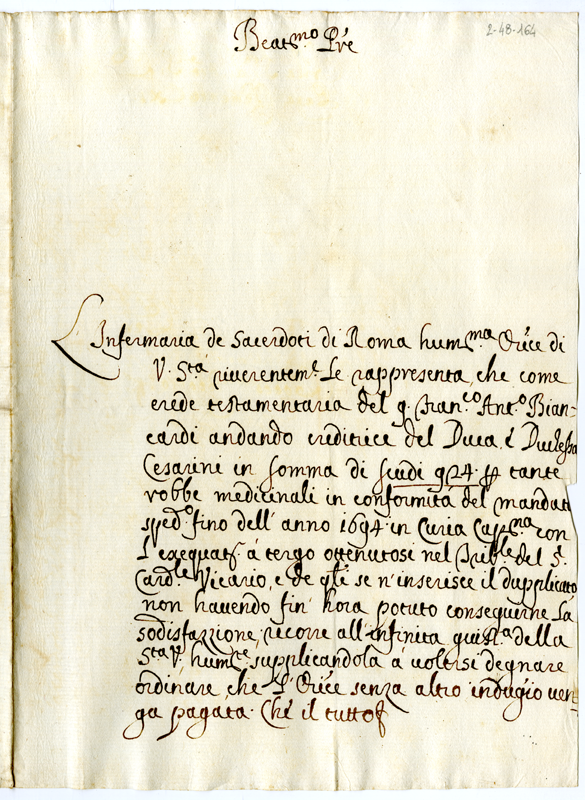 Beatmo Prē
2-48-164
L'Infermaria de Sacerdoti di Roma humma Orice di
V. Stà riverenteme Le rappresenta, che come
erede testamentaria del q. Franco Anto Bian-
cardi andando creditrice del Duca, è Duchessa
Cesarini in somma di scudi 924 p tante
robbe medicinali in conformità del mandato
spedo fino dell'anno 1694 in Curia Capna con
L'exequatr à tergo ottenutosi nel Trible del S.
Cardle Vicario, e de qli se n'inserisce il dupplicato
non havendo fin hora potuto conseguirne La
sodisfazzione, ricorre all'infinita giustia della
Sta V. humte supplicandola à volersi degnare
ordinare che L'Orice senza altro indugio ven-
ga pagata. Che il tutto